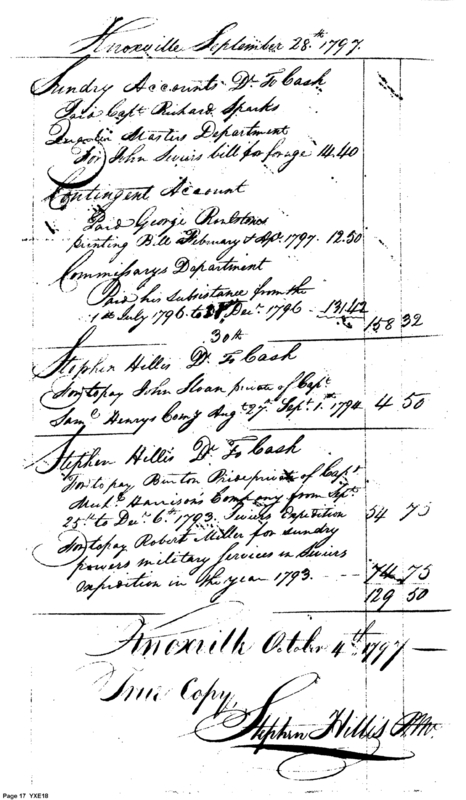 Knoxville September 28.th 1797.
Sundry Accounts Dr To Cash
Paid Capt Richard Sparks
Quarter Masters Department
For John Seviers bill for forage 14.40
Contingent Account
Paid George Roulstones
printing Bill February & 1797. 12.50
Commissarys Department
Paid his subsistance from the
1st July 1796 to 31st Decr 1796 - 131.42
158 32
30th
Stephen Hillis Dr To Cash
to pay John Sloan private of Capt
Saml Henrys Comy Augt 27th Sept 1.st 1794 4 50
Stephen Hillis Dr To Cash
to pay Burton Pride private of Capt
Harrison's Company from Sept
25th to Decr 6th 1793. Seviers Expedition 54 75
to pay Robert Miller for sundry
powers military services in Seviers
expedition in the year 1793. 74 75
129 50
Knoxville October 4th 1797
True Copy,
Stephen Hillis P.M.
Page 17 YXE18